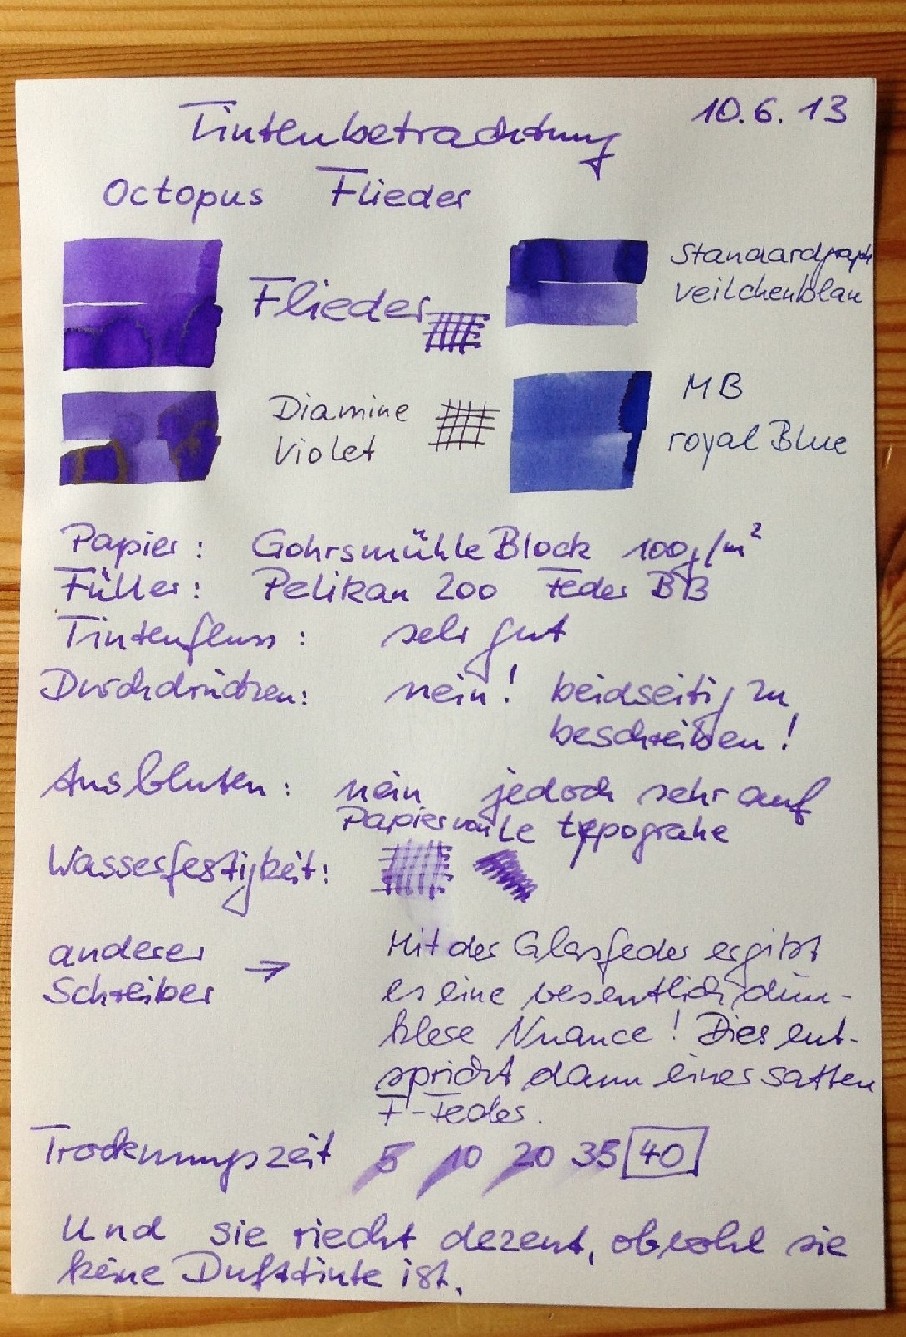 10.6.13
Tintenbetrachtung
Octopus Flieder
Flieder
Standardgraph
veilchenblau
Diamine
Violet
MB
royal Blue
Papier: Gohrsmühle Block 100g/m²
Füller: Pelikan 200 Feder BB
Tintenfluss: sehr gut
Durchdrücken: nein! beidseitig zu
beschreiben!
Ausbluten: nein jedoch sehr auf
Papier typograhe
Wasserfestigkeit:
anderer
Schreiber →
Mit der Glasfeder ergibt
es eine wesentlich dun-
klere Nuance! Dies ent-
spricht dann einer satten
F-Feder.
Trocknungszeit 5 10 20 35 40
Und sie riecht dezent, obwohl sie
keine Dufttinte ist.